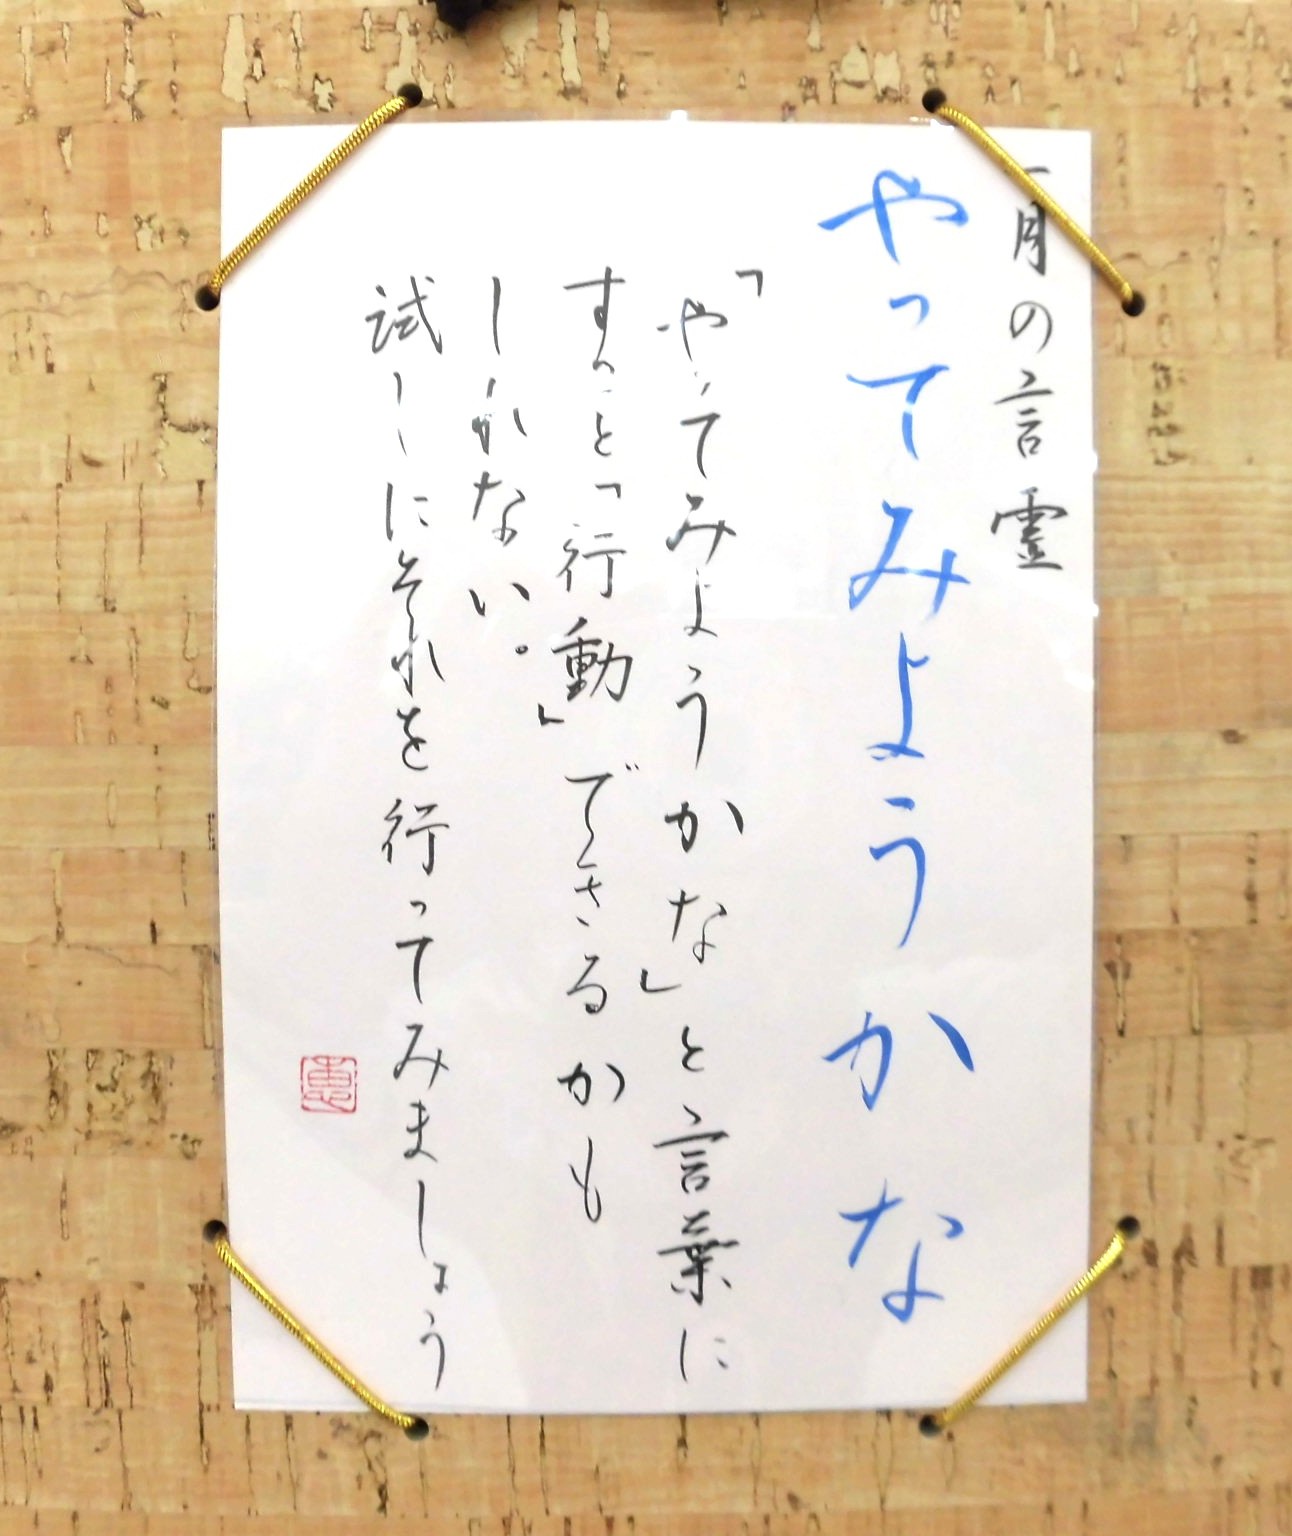 一月の言霊
やってみようかな
「やってみようかな」と言葉に
すると「行動」できるかも
しれない。
試しにそれを行ってみましょう
恵